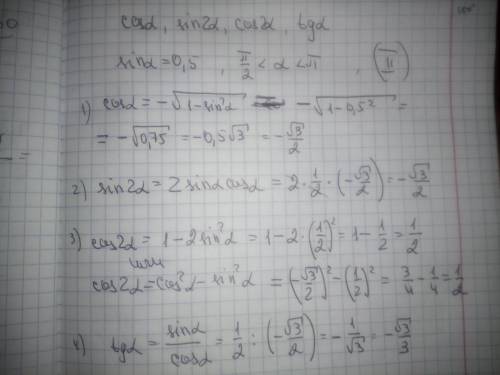 cosα, sin2α, cos2α, tgα
sinα = 0,5 , π/2 < α < π , (II)
1) cosα = -√(1-sin²α) = -√(1-0,5²) =
= -√0,75 = -0,5√3 = -√3/2
2) sin2α = 2 sinα cosα = 2·1/2·(-√3/2) = -√3/2
3) cos2α = 1-2sin²α = 1-2·(1/2)² = 1-1/2 = 1/2
или
cos2α = cos²α - sin²α = (-√3/2)² - (1/2)² = 3/4 - 1/4 = 1/2
4) tgα = sinα/cosα = 1/2 : (-√3/2) = -1/√3 = -√3/3